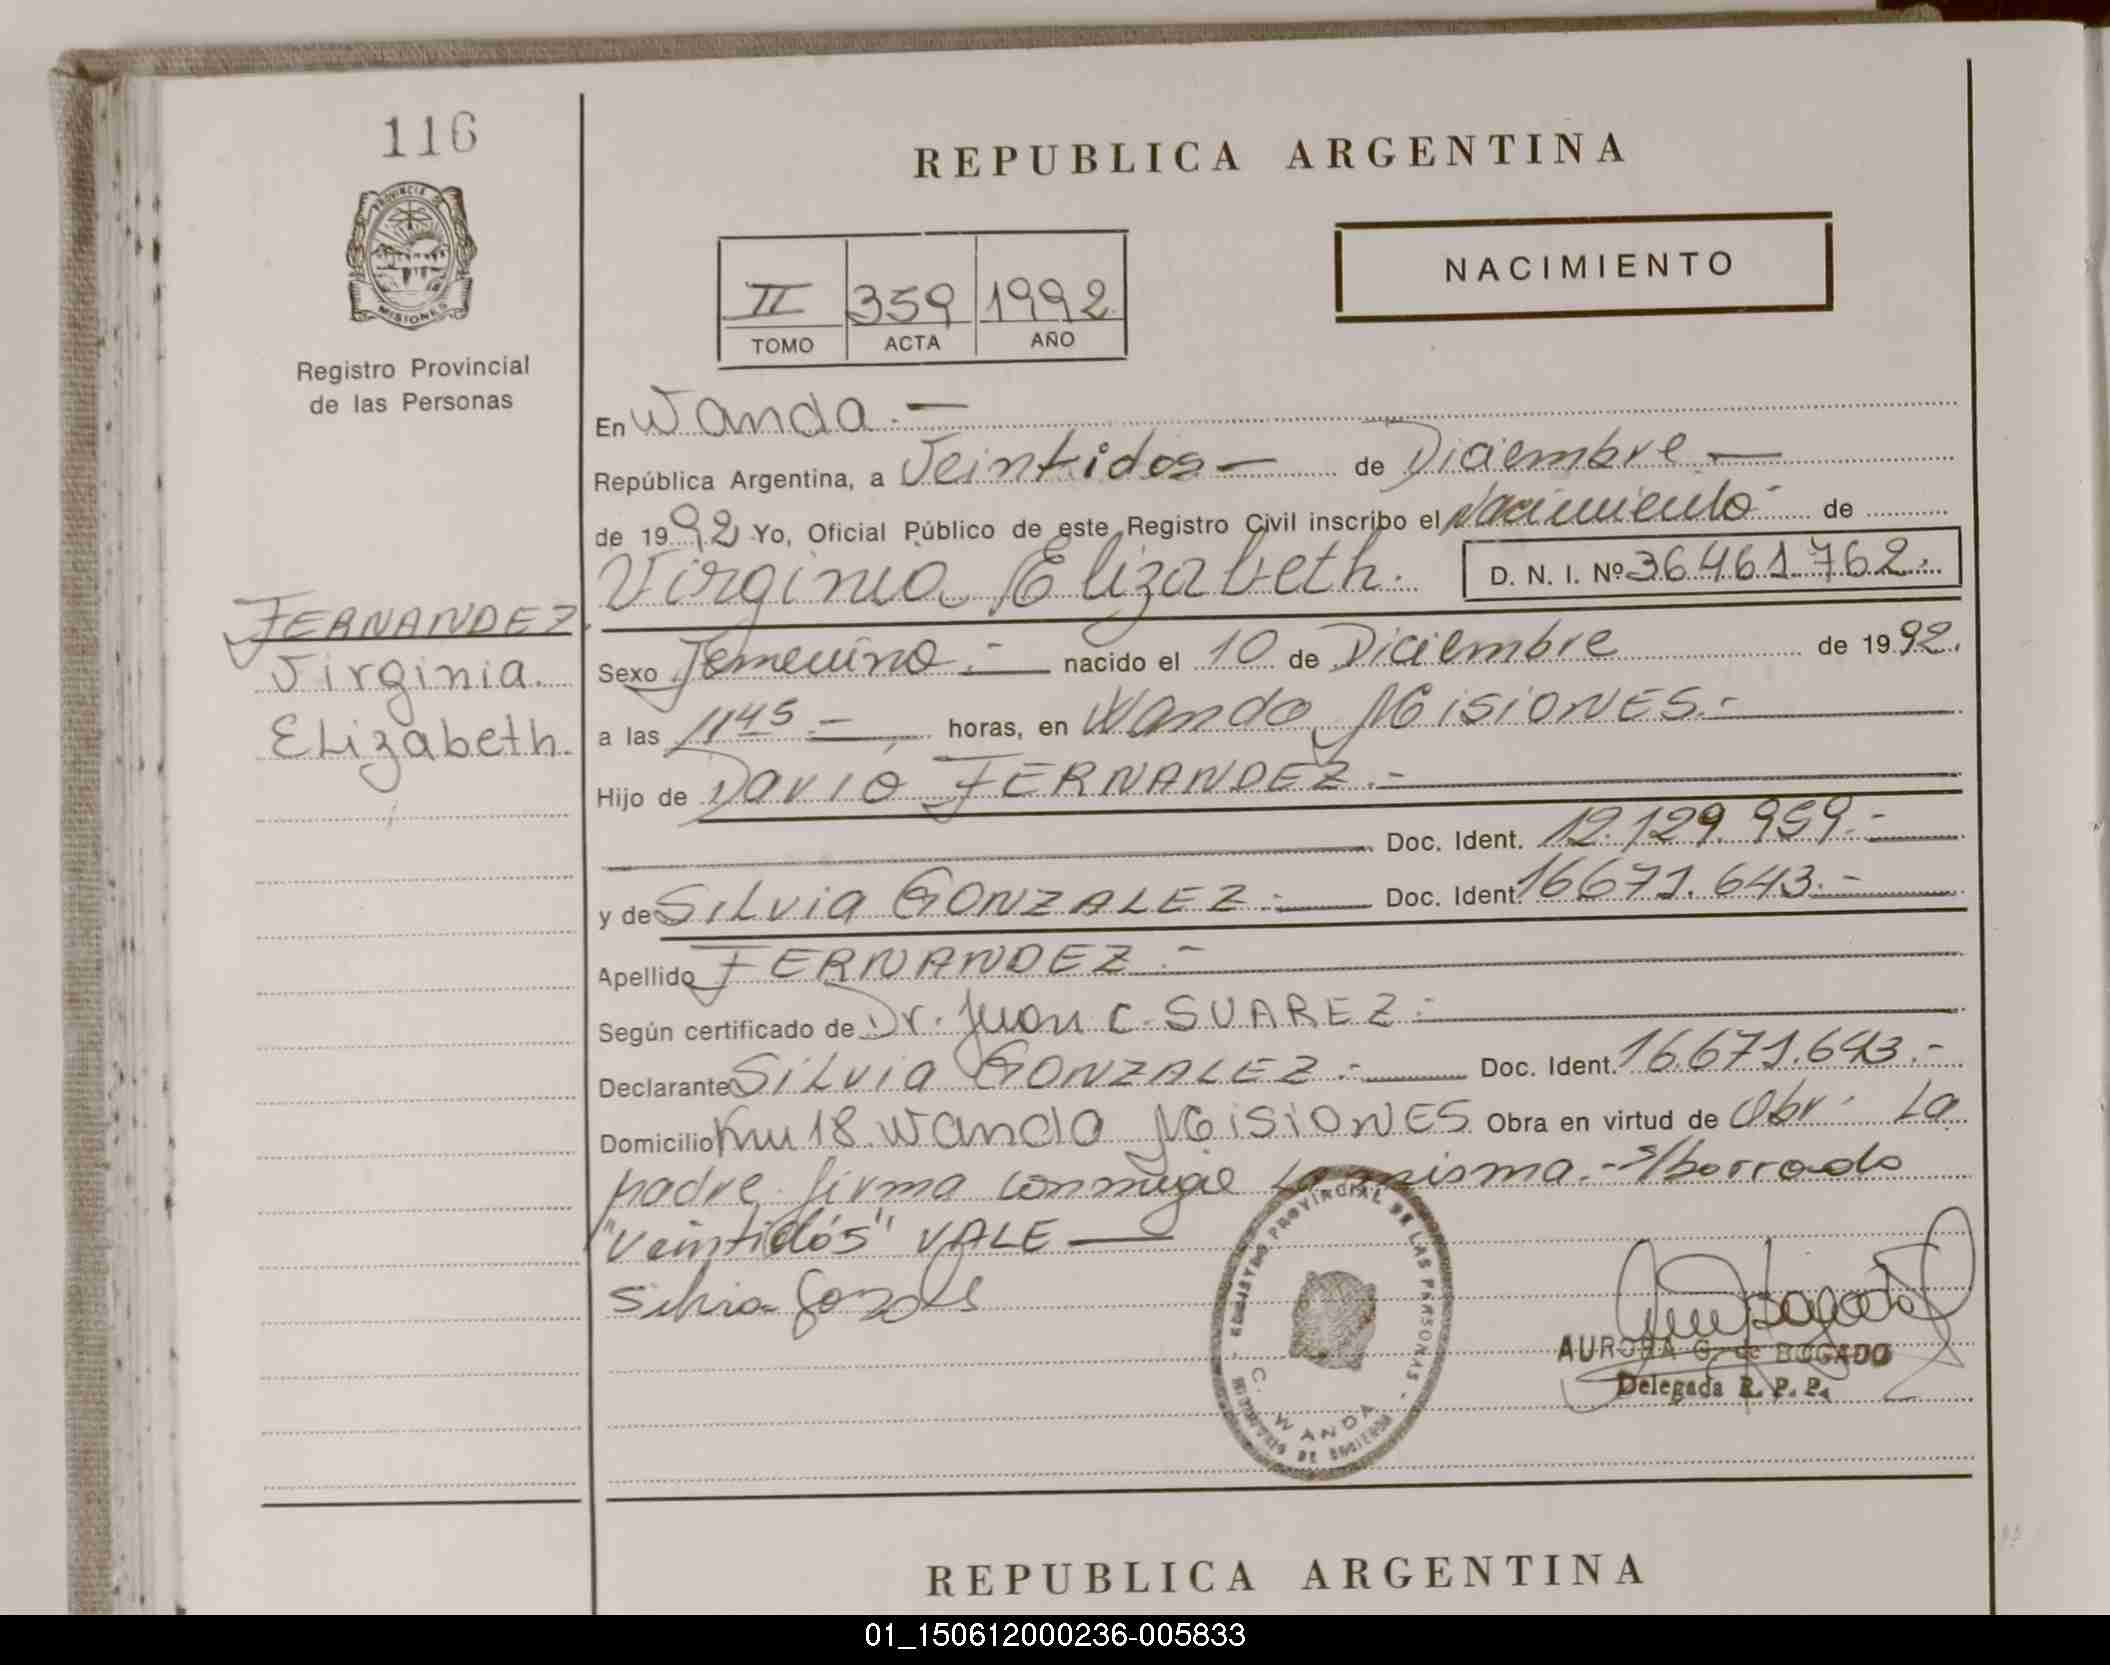 116
PROVINCIA DE
MISIONES
Registro Provincial
de las Personas
FERNANDEZ
Virginia.
ELizabeth.
REPUBLICA ARGENTINA
NACIMIENTO
II 359 1992
TOMO ACTA AÑO
En Wanda.-
República Argentina, a Veintidos- de Diciembre.-
de 1992 Yo, Oficial Público de este Registro Civil inscribo el Nacimiento de
Virginia Elizabeth. D. N. I. Nº 36.461.762.
Sexo Femenino.- nacido el 10 de Diciembre de 1992.
a las 11 45 - horas, en Wanda Misiones.-
Hijo de David FERNANDEZ.-
Doc. Ident. 12.129.959.-
y de Silvia GONZALEZ.- Doc. Ident. 16671.643.-
Apellido FERNANDEZ.-
Según certificado de Dr. Juan C. SUAREZ.-
Declarante Silvia GONZALEZ.- Doc. Ident. 16.671.643.-
Domicilio Km 18. Wanda Misiones Obra en virtud de Obr. La
padre firma conmigo la misma.- s/borrado
"veintidós" VALE
Silvia
REGISTRO PROVINCIAL DE LAS PERSONAS
WANDA
MINISTERIO DE GOBIERNO
AURORA G. de BOGADO
Delegada R. P. P.
REPUBLICA ARGENTINA
01_150612000236-005833